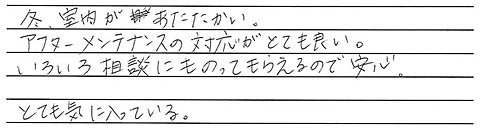 冬、室内があたたかい。
アフターメンテナンスの対応がとても良い。
いろいろ相談にものってもらえるので安心。
とても気に入っている。